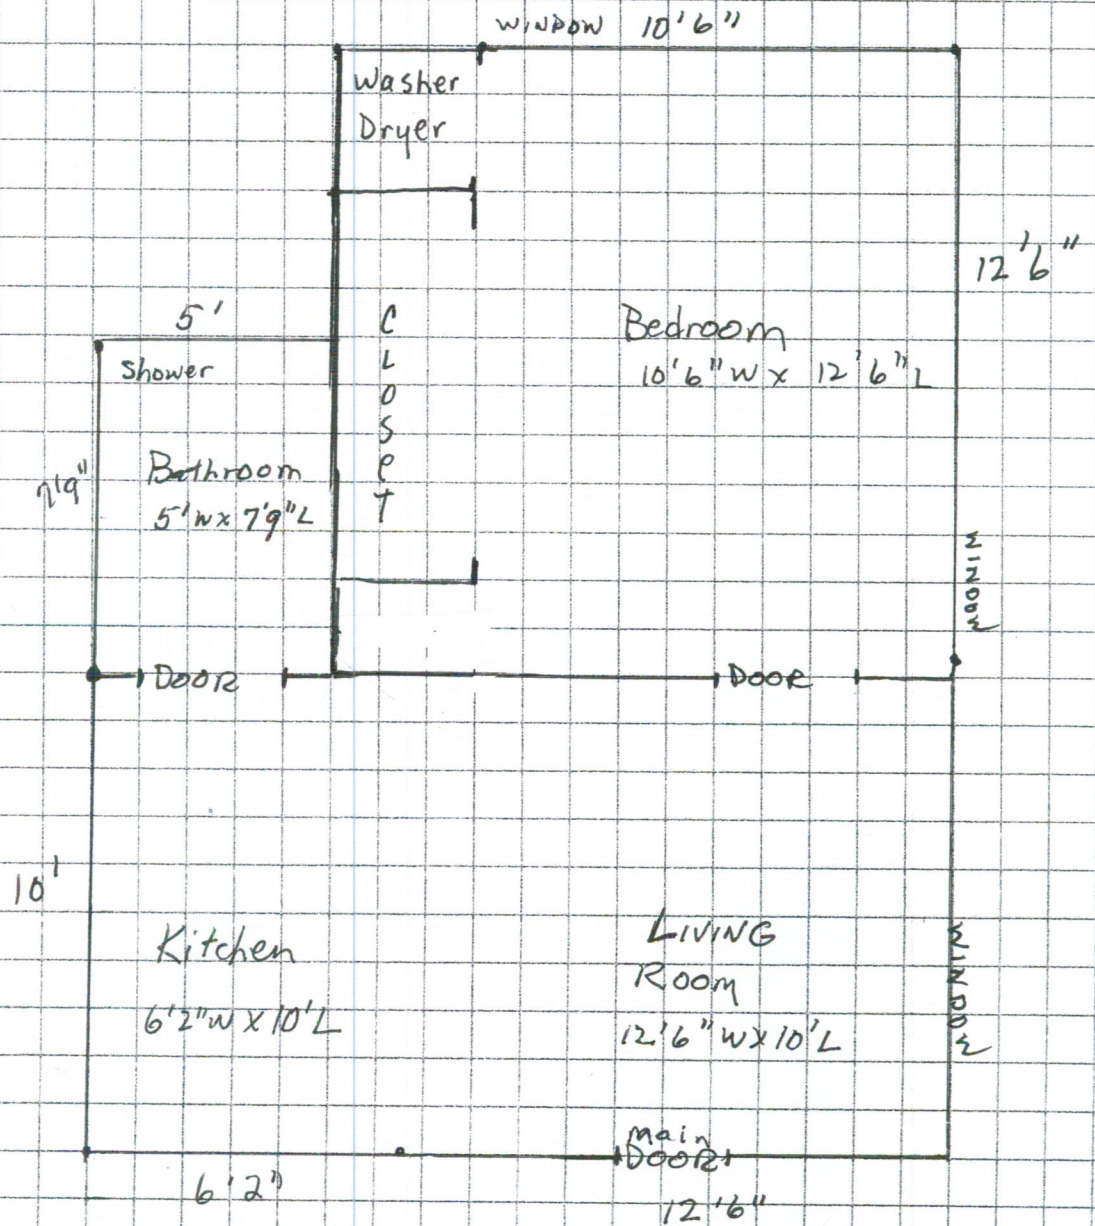 WINDOW 10'6"
Washer
Dryer
12'6"
5'
Shower
CLOSeT
Bedroom
10'6"W x 12'6"L
7'9"
Bathroom
5'W x 7'9"L
WINDOW
DOOR
DOOR
10'
Kitchen
6'2"W X 10'L
LIVING
ROOM
12'6" W X 10'L
WINDOW
Main
DOOR
6'2"
12'6"